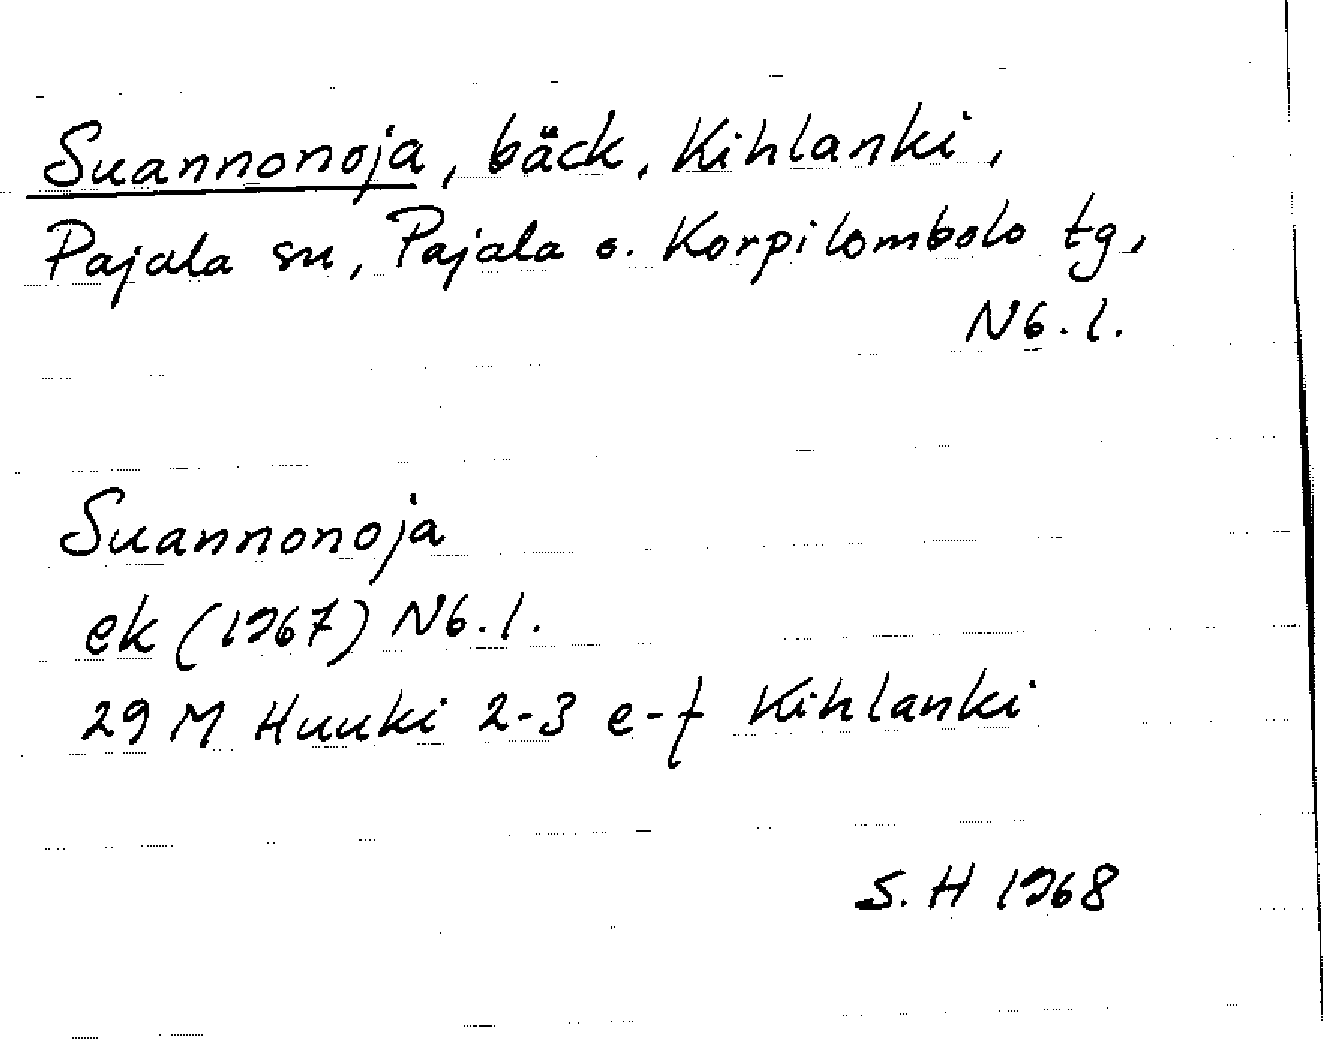 Suannonoja, bäck, Kihlanki,
Pajala sn, Pajala o. Korpilombolo tg,
Nb. l.
Suannonoja
ek (1967) Nb. l.
29 M Huuki 2-3 e-f Kihlanki
S. H 1968